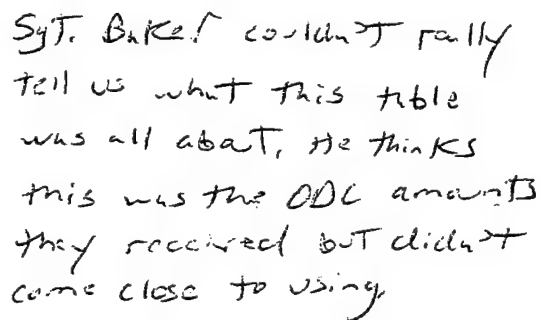 Sgt. Baker couldn't really
tell us what this table
was all about. He thinks
this was the ODC amounts
they received but didn't
come close to using.